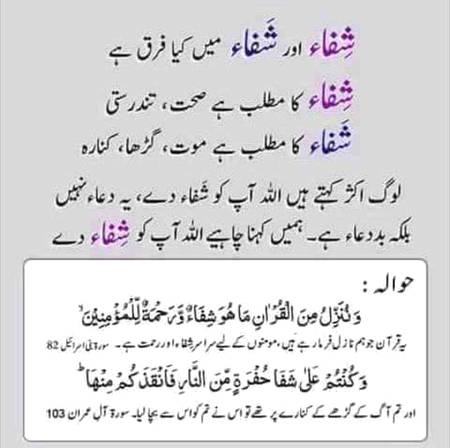 شِفاء اور شَفاء میں کیا فرق ہے
شِفاء کا مطلب ہے صحت، تندرستی
شَفاء کا مطلب ہے موت، گڑھا، کنارہ
لوگ اکثر کہتے ہیں اللہ آپ کو شَفاء دے، یہ دعاء نہیں
بلکہ بددعاء ہے۔ ہمیں کہنا چاہیے اللہ آپ کو شِفاء دے
حوالہ :
وَنُنَزِّلُ مِنَ الْقُرْاٰنِ مَا هُوَ شِفَاءٌ وَّرَحْمَةٌ لِّلْمُؤْمِنِيْنَ ۙ
یہ قرآن جو ہم نازل فرما رہے ہیں، مومنوں کے لیے سراسر شفاء اور رحمت ہے۔ سورۃ بنی اسرائیل 82
وَكُنْتُمْ عَلٰى شَفَا حُفْرَةٍ مِّنَ النَّارِ فَاَنْقَذَكُمْ مِنْهَا ؕ
اور تم آگ کے گڑھے کے کنارے پر تھے تو اس نے تم کو اس سے بچا لیا۔ سورۃ آل عمران 103